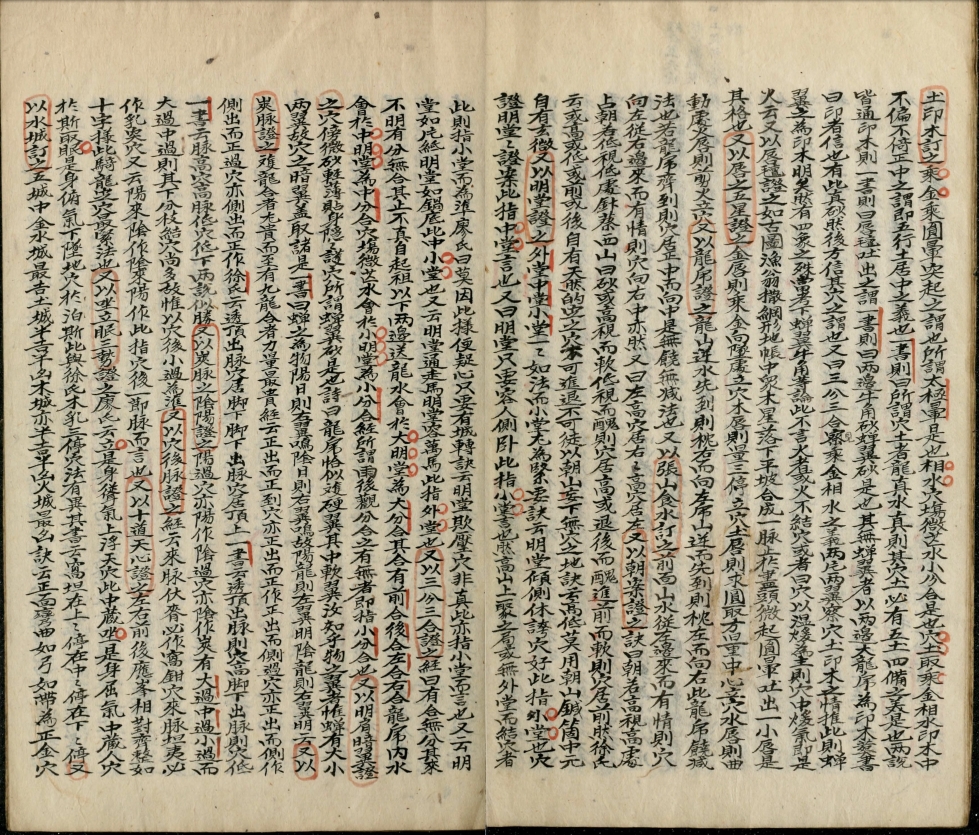 土印木訂之乘金乘圓暈突起之謂也所謂太極暈是也相水穴塲微茫水小八合是也穴土取乘金相水印木中
不偏不倚正中之謂即五行土居中之義也一書則曰所謂穴土者龍真水真則其穴土必有五土四備之美是也两說
皆通印木則一書則曰唇氊吐出之謂一書則曰两邊牛角砂蟬翼砂是也其無蟬翼者以两邊大龍虎為印木葬書
曰印者信也有此真砂然後方信其穴之謂也又曰三分三合察乘金相水之義两片两翼察穴土印木之情推此則蟬
翼之為印木明矣然有四象之殊當考下蟬翼牛角等論此不言大葢火不結穴或者曰穴以温煖為主則穴中煖氣即是
火云又以唇氊證之如古圖漁翁撒網形地帳中貪木星落下平坡合成一脉止於盡頭微起圓暈吐出一小唇是
其格也又以唇之五星證之金唇則乘金向墜處立穴木唇則量三停立穴土唇則求圓取方四量中心立穴水唇則曲
動處火唇則剪火立穴又以龍虎證之龍山逆水先到則枕右而向左虎山逆而先到則枕左而向右此龍虎饒减
法也若龍虎齊到則穴居正中而向中是無饒無减法也又以張山食水訂之前面山水從左邊來而有情則穴
向左從右邊來而有情則穴向右中亦然又曰左高穴居右右高穴居左又以朝案證之訣曰朝若高視高處
占朝若低視低處針葢四山曰砂或高視而軟低視而醜則穴居高或退後而醜進前而軟則穴居立前然徐氏
云或高或低或前或後自有天然的定之穴不可進退不可徙以朝山妄下無穴之地訣云高低莫用朝山鍼箇中元
自有玄微又以明堂證之外堂中堂小堂一一如法而小堂尤為緊要訣云明堂傾側休誇穴好此指外堂也穴
證明堂堂證案此指中堂言也又曰明堂只要容人側卧此指小堂言也然高山上聚之局或無外堂而結穴者
此則指小堂而為準廖氏曰莫因此樣便疑心只要有抵轉訣云明堂欺壓穴非真此亦指小堂而言也又云明
堂如片紙明堂如鍋底此中小堂也又云明堂通走馬明堂容萬馬此指外堂也又以三分三合證之經曰有合無分其來
不明有分無合其止不真自起祖以下两邊送龍水會於大明堂為大分合其合有前合後合左合右合龍虎内水
會於中明堂為中分合穴塲微茫水會於小明堂為小分合經所謂雨後觀分合之有無者即指小分合也又以明肩暗翼證
之穴傍微砂輕薄貼身隱護穴所謂蟬翼砂是也詩曰龍尾恰似硬砂翼其中軟翼汝知乎物之翼者惟蟬有大小
两翼故穴之暗翼葢取諸是一書曰蟬之為物陽日則右翼鳴陰日則右翼鳴故陽龍則左翼明陰龍則右翼明一又以
葬脉證之雄龍合者尤貴而至有九龍合者力量最貴經云正出而正到穴亦正出而正作正出而側過穴亦正出而側作
側出而正過穴亦側出而正作徐氏云透頂出脉穴居脚下脚下出脉穴居頂上一書云透頂出脉則穴高脚下出脉則穴低
一書云脉高穴高脉低穴低下两說似勝又以炭脉之陰陽證之陽過穴亦陽作陰過穴亦陰作葬有大過中過小過而
大過中過則其下分枝結穴尚多故惟以穴後小過為準又以穴後脉證之經云來脉伏脊必作窩鉗穴來脉坦夷必
作乳突穴又云陽來陰作陰來陽作此指穴後一節脉而言也又以十道天心證之左右前後應峯相對齊整如
十字樣此騎龍立穴最緊法也又以坐立眠三勢證之廖氏云立是身聳氣上浮天穴此中藏坐是身屈氣中藏人穴
於斯取眠是身俯氣下墜地穴於泊斯此與徐氏木乳三停穴法有異其書云窩坦在上上停在中中停在下下停又
以水城訂之五城中金水城最吉土城半吉半凶木城亦半吉半凶火城最凶訣云正面彎曲如弓如帶為正金穴